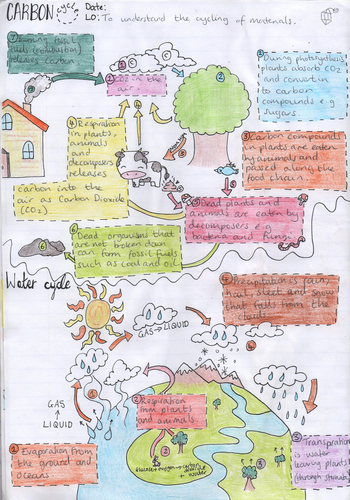 CARBON cycle
Date:
LO: To understand the cycling of materials.
⑦ Burning fossil
fuels (combustion)
releases carbon.
① CO2 in the
air.
② During photosynthesis
plants absorb CO2
and convert in
to carbon
compounds e.g
sugars.
④ Respiration
in plants,
animals
and
decomposers
releases
carbon into the
air as Carbon Dioxide
(CO2)
③ Carbon compounds
in plants are eaten
by animals and
passed along the
food chain.
⑤ Dead plants and
animals are eaten by
decomposers e.g
bacteria and fungi.
⑥ Dead organisms that
are not broken down
can form fossil fuels
such as coal and oil.
6
Water cycle
Precipitation is rain,
hail, sleet and snow
that falls from the
clouds
GAS → LIQUID
GAS
↑
LIQUID
② Respiration
from plants
and animals.
① Evaporation from
the ground and
oceans
glucose + oxygen → carbon dioxide + water
Transpiration
is water
leaving plants
through stomata